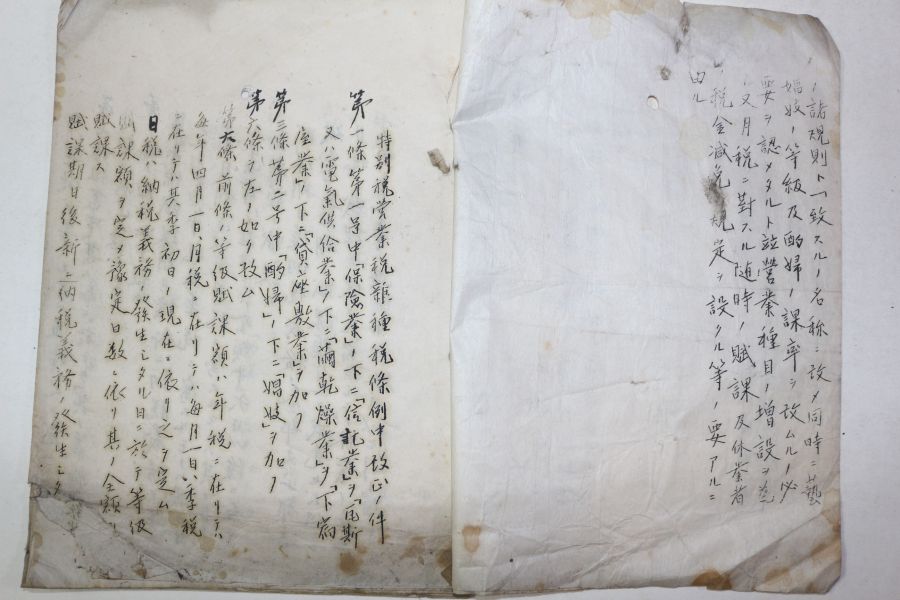 ノ諸規則ト一致スルノ名称ニ改メ同時ニ藝
娼妓ノ等級及酌婦ノ課率ヲ改ムルノ必
要ヲ認メタルト竝營業種目ノ増設ヲ為
シ又月税ニ對スル随時ノ賦課及休業者
ノ税金減免ノ規定ヲ設クル等ノ要アルニ
由ル
特別税営業税雜種税條例中改正ノ件
第一條第一号中「保險業」ノ下ニ「信託業」ヲ「瓦斯
又ハ電氣供給業」ノ下ニ「繭乾燥業」ヲ「下宿
屋業」ノ下ニ「貸座敷業」ヲ加フ
第三條第二号中「酌婦」ノ下ニ「娼妓」ヲ加フ
第六條ヲ左ノ如ク改ム
第六條 前條ノ等級賦課額ハ年税ニ在リテハ
毎年四月一日、月税ニ在リテハ毎月一日、季税
ニ在リテハ其季初日ノ現在ニ依リ之ヲ定ム
日税ハ納税義務ノ發生シタル日ニ於テ等級
賦課額ヲ定メ豫定日数ニ依リ其ノ全額ヲ
賦課ス
賦課期日後新ニ納税義務ノ發生シタ